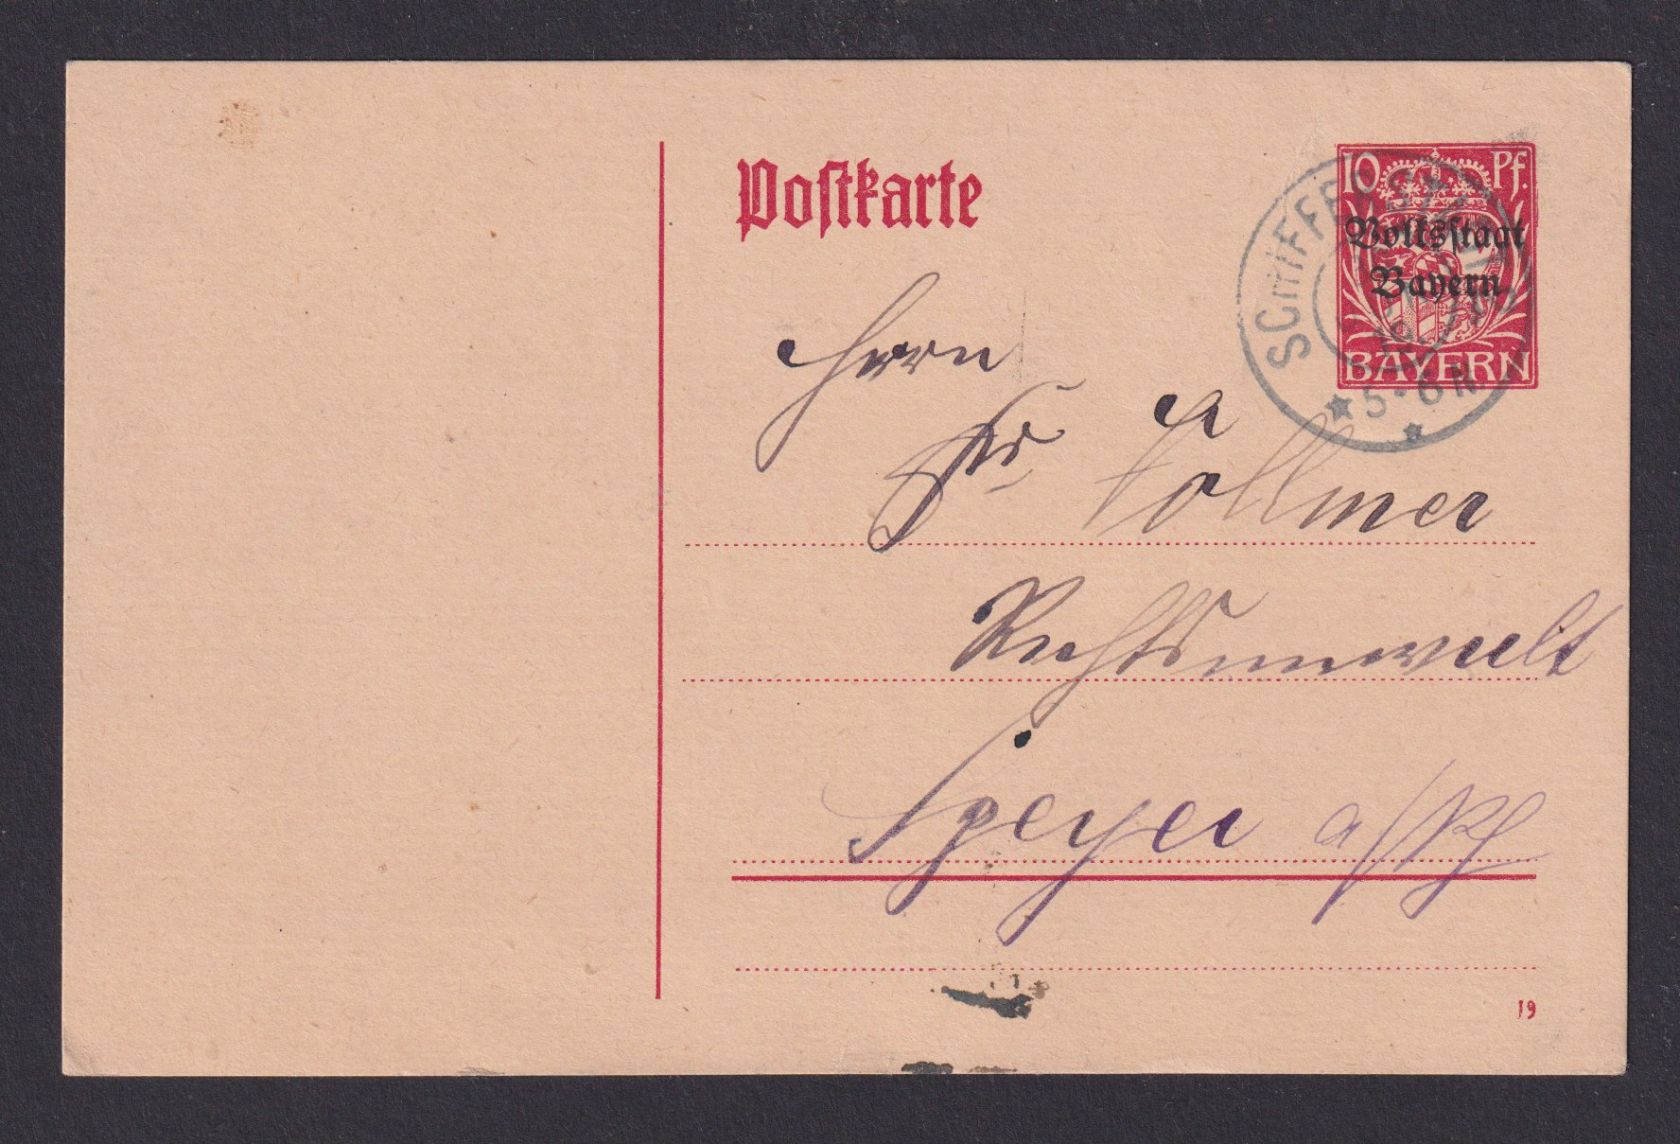 Postkarte
10 Pf.
Volksstaat
Bayern
BAYERN
SCHIFFERST
★ 5-6 N
Herrn
Fr. Vollmer
Rechtsanwalt
Speyer a/Rh
19